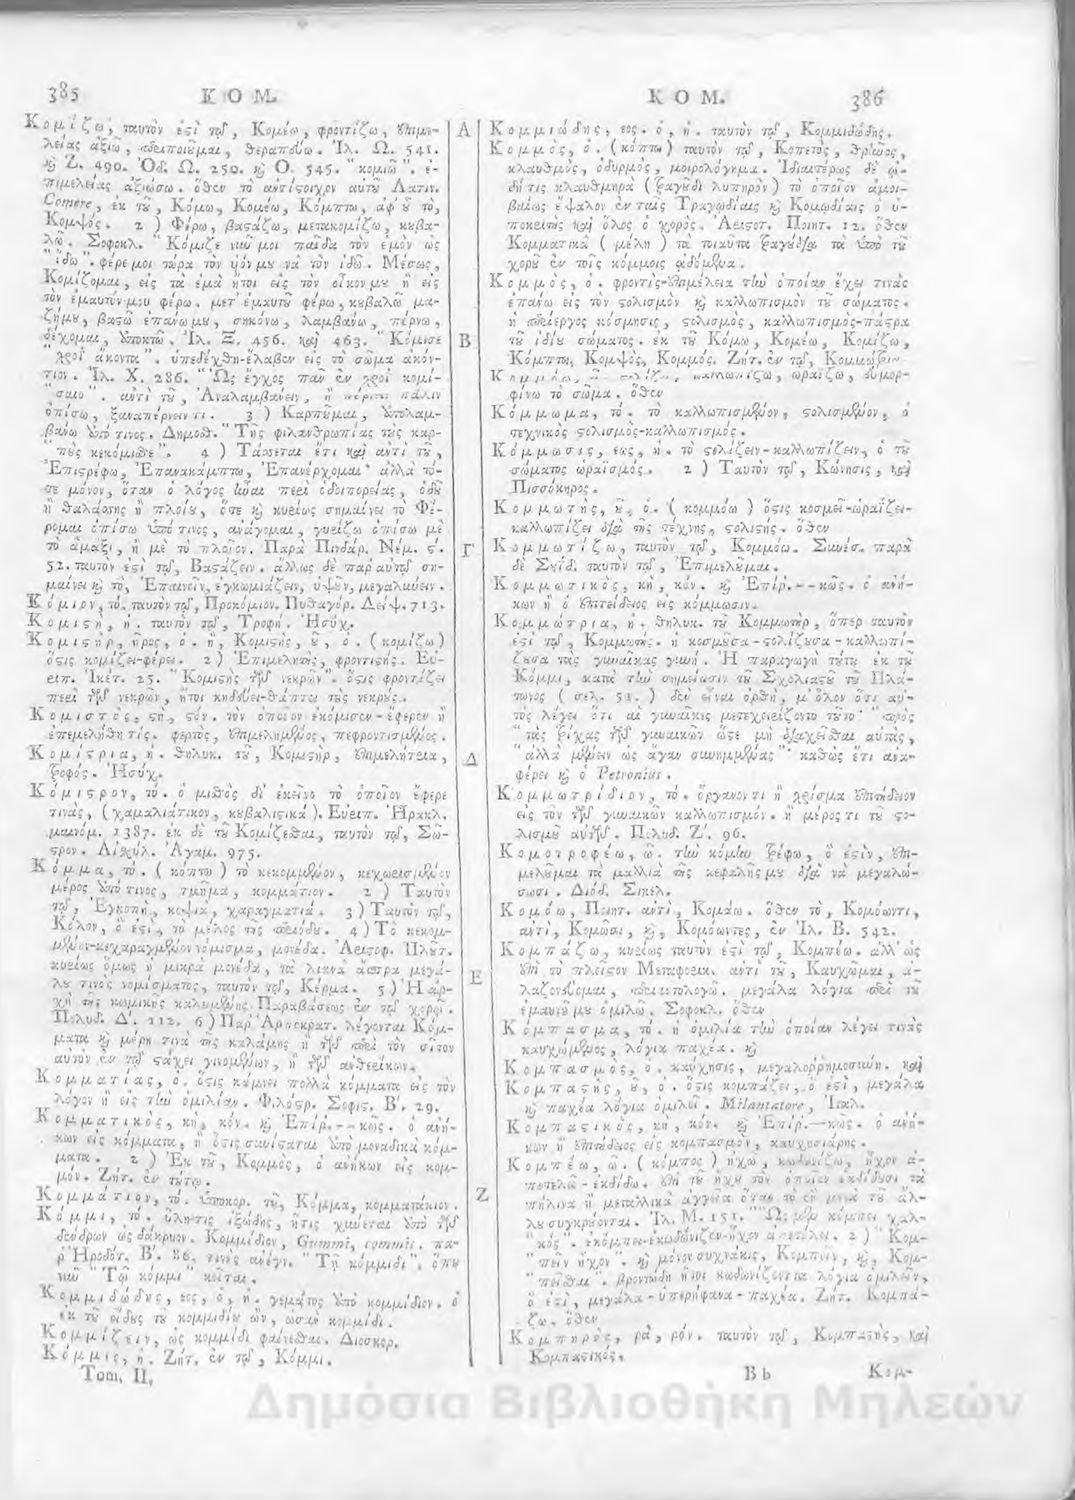 385 ΚΟΜ.
Κομίζω, ταυτὸν ἐςὶ τῷ, Κομέω, φροντίζω, ἐπιμε-
λείας ἀξιῶ, περιποιοῦμαι, θεραπεύω. Ἰλ. Ω. 541.
καὶ Ζ. 490. Ὀδ. Ω. 250. καὶ Ο. 545. "κομιῶ". ἐ-
πιμελείας ἀξιώσω. ὅθεν τὸ ἀντίςοιχον αὐτοῦ Λατιν.
Comere, ἐκ τοῦ, Κόμω, Κομέω, Κόμπτω, ἀφ' οὗ τὸ,
Κομψός. 2 ) Φέρω, βαςάζω, μετακομίζω, κυβα-
λῶ. Σοφοκλ. "Κόμιζε νῦν μοι παῖδα τὸν ἐμὸν ὡς
"ἴδω". φέρε μοι τώρα τὸν υἱόν μου νὰ τὸν ἰδῶ. Μέσως,
Κομίζομαι, εἰς τὰ ἐμὰ ἤτοι εἰς τὸν οἶκόν μου ἢ εἰς
τὸν ἐμαυτόν μου φέρω. μετ' ἐμαυτοῦ φέρω, κυβαλῶ μα-
ζήμου, βαςῶ ἐπάνω μου, σηκόνω, λαμβάνω, πέρνω,
δέχομαι, ὑποκτῶ. Ἰλ. Ξ. 456. καὶ 463. "Κόμισε
"χροῒ ἄκοντα". ὑπεδέχθη-ἔλαβεν εἰς τὸ σῶμα ἀκόν-
τιον. Ἰλ. Χ. 286. "Ὡς ἔγχος πᾶν ἐν χροῒ κομί-
"σαιο". ἀντὶ τοῦ, Ἀναλαμβάνειν, ἢ πέρνει πάλιν
ὀπίσω, ξαναπέρνειν τι. 3 ) Καρποῦμαι, ὑπολαμ-
βάνω ὑπό τινος. Δημοσθ. "Τῆς φιλανθρωπίας τοὺς καρ-
"ποὺς κεκόμισθε". 4 ) Τάσσεται ἔτι καὶ ἀντὶ τοῦ,
Ἐπιςρέφω, Ἐπανακάμπτω, Ἐπανέρχομαι· ἀλλὰ τό-
σε μόνον, ὅταν ὁ λόγος ἦναι περὶ ὁδοιπορείας, ὁδοῦ
ἢ θαλάσσης ἢ πλοίου, ὅτε καὶ κυρίως σημαίνει τὸ Φέ-
ρομαι ὀπίσω ὑπό τινος, ἀνάγομαι, γυρίζω ὀπίσω μὲ
τὸ ἁμάξι, ἢ μὲ τὸ πλοῖον. Παρὰ Πινδάρ. Νέμ. ς.
52. ταυτὸν ἐςὶ τῷ, Βαςάζειν. ἄλλως δὲ παρ' αὐτῷ ση-
μαίνει καὶ τὸ, Ἐπαινεῖν, ἐγκωμιάζειν, ὑψοῦν, μεγαλύνειν.
Κόμιον, τό. ταυτὸν τῷ, Προκόμιον. Πυθαγόρ. Λείψ. 713.
Κομιςὴ, ἡ. ταυτὸν τῷ, Τροφή. Ἡσύχ.
Κομιςὴρ, ῆρος, ὁ. ἢ, Κομιςὴς, οῦ, ὁ. (κομίζω)
ὅςις κομίζει-φέρει. 2 ) Ἐπιμελητὴς, φροντιςής. Εὐ-
ριπ. Ἱκέτ. 25. "Κομιςὴς τῶν νεκρῶν". ὅςις φροντίζει
περὶ τῶν νεκρῶν, ἤτοι κηδεύει-θάπτει τοὺς νεκρούς.
Κομιστὸς, ςὴ, ςόν. τὸν ὁποῖον ἐκόμισεν-ἔφερεν ἢ
ἐπεμελήθη τίς. φερτὸς, ἐπιμελημένος, πεφροντισμένος.
Κομίςρια, ἡ. θηλυκ. τοῦ, Κομιςὴρ, ἐπιμελήτρια,
τροφός. Ἡσύχ.
Κόμιςρον, τό. ὁ μισθὸς δι' ἐκεῖνο τὸ ὁποῖον ἔφερέ
τινάς, (χαμαλιάτικον, κυβαλιςικά). Εὐριπ. Ἡρακλ.
μαινόμ. 1387. ἐκ δὲ τοῦ Κομίζεσθαι, ταυτὸν τῷ, Σῶ-
ςρον. Αἰσχύλ. Ἀγαμ. 975.
Κόμμα, τό. ( κόπτω ) τὸ κεκομμένον, κεχωρισμένον
μέρος ὑπό τινος, τμῆμα, κομμάτιον. 2 ) Ταυτὸν
τῷ, Ἐγκοπὴ, κοψιὰ, χαραγματιά. 3 ) Ταυτὸν τῷ,
Κόλον, ὅ ἐςι, τὸ μέλος τῆς περιόδου. 4 ) Τὸ κεκομ-
μένον-κεχαραγμένον νόμισμα, μονέδα. Ἀριςοφ. Πλούτ.
κυρίως ὅμως ἡ μικρὰ μονέδα, τὰ λιανὰ ἄσπρα μεγά-
λου τινὸς νομίσματος, ταυτὸν τῷ, Κέρμα. 5 ) Ἡ ἀρ-
χὴ τῆς κωμικῆς καλουμένης Παραβάσεως ἐν τῷ χορῷ.
Πολυδ. Δ'. 112. 6 ) Παρ' Ἁρποκρατ. λέγονται Κόμ-
ματα καὶ μέρη τινὰ τῆς καλάμης ἢ τῶν περὶ τὸν σῖτον
αὐτὸν ἐν τῷ ςάχει γινομένων, ἢ τῶν ἀνθερίκων.
Κομματίας, ὁ. ὅςις κάμνει πολλὰ κόμματα εἰς τὸν
λόγον ἢ εἰς τὴν ὁμιλίαν. Φιλόςρ. Σοφις. Β'. 29.
Κομματικὸς, κὴ, κόν. καὶ Ἐπίρ.--κῶς. ὁ ἀνή-
κων εἰς κόμματα, ἢ ὅςις συνίςαται ἀπὸ μοναδικὰ κόμ-
ματα. 2 ) Ἐκ τοῦ, Κομμός, ὁ ἀνήκων εἰς κομ-
μόν. Ζήτ. ἐν τούτῳ.
Κομμάτιον, τό. ὑποκορ. τοῦ, Κόμμα, κομματάκιον.
Κόμμι, τό. ὕλη τις ἰξώδης, ἥτις χύνεται ἀπὸ τῶν
δένδρων ὡς δάκρυον. Κομμίδιον, Gummi, commis. πα-
ρ' Ἡροδότ. Β'. 86. τινὲς ἀνέγν. "Τῇ κόμμιδι". ὅπου
νῦν "Τῷ κόμμι" κεῖται.
Κομμιδώδης, εος, ὁ, ἡ. γεμάτος ἀπὸ κομμίδιον. ὁ
ἐκ τοῦ εἴδους τοῦ κομμιδίου ὢν, ὡσὰν κομμίδι.
Κομμίζειν, ὡς κομμίδι φαίνεσθαι. Διοσκορ.
Κόμμις, ἡ. Ζήτ. ἐν τῷ, Κόμμι.
Tom. II.
Α
Β
Γ
Δ
Ε
Ζ
ΚΟΜ. 386
Κομμιώδης, εος. ὁ, ἡ. ταυτὸν τῷ, Κομμιδώδης.
Κομμὸς, ὁ. (κόπτω) ταυτὸν τῷ, Κοπετὸς, θρῆνος,
κλαυθμὸς, ὀδυρμὸς, μοιρολόγημα. Ἰδιαιτέρως δὲ ᾠ-
δή τις κλαυθμηρὰ (τραγούδι λυπηρὸν) τὸ ὁποῖον ἀμοι-
βαίως ἔψαλον ἐν ταῖς Τραγῳδίαις καὶ Κομῳδίαις ὁ ὑ-
ποκριτὴς καὶ ὅλος ὁ χορός. Ἀριςοτ. Ποιητ. 12. ὅθεν
Κομματικὰ (μέλη) τὰ τοιαῦτα τραγούδια τὰ ὑπὸ τοῦ
χοροῦ ἐν τοῖς κόμμοις ᾀδόμενα.
Κομμὸς, ὁ. φροντὶς-ἐπιμέλεια τὴν ὁποίαν ἔχει τινὰς
ἐπάνω εἰς τὸν ςολισμὸν καὶ καλλωπισμὸν τοῦ σώματος.
ἡ περίεργος κόσμησις, ςολισμὸς, καλλωπισμὸς-πάςρα
τοῦ ἰδίου σώματος. ἐκ τοῦ Κόμω, Κομέω, Κομίζω,
Κόμπτω, Κομψὸς, Κομμός. Ζήτ. ἐν τῷ,
καλλωπίζω, ὡραΐζω, εὐμορ-
φίνω τὸ σῶμα. ὅθεν
Κόμμωμα, τό. τὸ καλλωπισμένον, ςολισμένον, ὁ
τεχνικὸς ςολισμὸς-καλλωπισμός.
Κόμμωσις, εως, ἡ. τὸ ςολίζειν-καλλωπίζειν, ὁ τοῦ
σώματος ὡραϊσμός. 2 ) Ταυτὸν τῷ, Κώνησις, καὶ
Πισσόκηρος.
Κομμωτὴς, οῦ, ὁ. ( κομμόω ) ὅςις κοσμεῖ-ὡραΐζει-
καλλωπίζει διὰ τῆς τέχνης, ςολιςής. ὅθεν
Κομμωτίζω, ταυτὸν τῷ, Κομμόω. Συνέσ. παρὰ
δὲ Σουΐδ. ταυτὸν τῷ, Ἐπιμελοῦμαι.
Κομμωτικὸς, κὴ, κόν. καὶ Ἐπίρ.--κῶς. ὁ ἀνή-
κων ἢ ὁ ἐπιτήδειος εἰς κόμμωσιν.
Κομμώτρια, ἡ. θηλυκ. τοῦ Κομμωτὴρ, ὅπερ ταυτὸν
ἐςὶ τῷ, Κομμωτής. ἡ κοσμοῦσα-ςολίζουσα-καλλωπί-
ζουσα τὰς γυναῖκας γυνή. Ἡ παραγωγὴ τούτου ἐκ τοῦ
Κόμμι, κατὰ τὴν σημείωσιν τοῦ Σχολιαςοῦ τοῦ Πλά-
τωνος ( σελ. 51. ) δὲν εἶναι ὀρθὴ, μ' ὅλον ὅτι αὐ-
τὸς λέγει ὅτι αἱ γυναῖκες μετεχειρίζοντο τοῦτο "πρὸς
"τὰς τρίχας τῶν γυναικῶν ὥςε μὴ διαχεῖσθαι αὐτὰς,
"ἀλλὰ μένειν ὡς ἄγαν συνημμένας"· καθὼς ἔτι ἀνα-
φέρει καὶ ὁ Petronius.
Κομμωτρίδιον, τό. ὄργανόν τι ἢ χρίσμα ἐπιτήδειον
εἰς τὸν τῶν γυναικῶν καλλωπισμόν. ἢ μέρος τι τοῦ ςο-
λισμοῦ αὐτῶν. Πολυδ. Ζ'. 96.
Κομοτροφέω, ῶ. τὴν κόμην τρέφω, ὅ ἐςὶν, ἐπι-
μελοῦμαι τὰ μαλλιὰ τῆς κεφαλῆς μου διὰ νὰ μεγαλώ-
σωσι. Διόδ. Σικελ.
Κομόω, Ποιητ. ἀντὶ, Κομάω. ὅθεν τὸ, Κομόωντι,
ἀντὶ, Κομῶσι, καὶ, Κομόωντες, ἐν Ἰλ. Β. 542.
Κομπάζω, κυρίως ταυτὸν ἐςὶ τῷ, Κομπέω. ἀλλ' ὡς
ἐπὶ τὸ πλεῖςον Μεταφορικ. ἀντὶ τοῦ, Καυχῶμαι, ἀ-
λαζονεύομαι, περιττολογῶ. μεγάλα λόγια περὶ τοῦ
ἐμαυτοῦ μου ὁμιλῶ. Σοφοκλ. ὅθεν
Κόμπασμα, τό. ἡ ὁμιλία τὴν ὁποίαν λέγει τινὰς
καυχώμενος, λόγια παχέα. καὶ
Κομπασμὸς, ὁ. καύχησις, μεγαλορρημοσύνη. καὶ
Κομπαςὴς, οῦ, ὁ. ὅςις κομπάζει, ὅ ἐςὶ, μεγάλα
καὶ παχέα λόγια ὁμιλεῖ. Milantatore, Ἰταλ.
Κομπαςικὸς, κὴ, κόν. καὶ Ἐπίρ.—κῶς. ὁ ἀνή-
κων ἢ ἐπιτήδειος εἰς κομπασμὸν, καυχησιάρης.
Κομπέω, ῶ. ( κόμπος ) ἠχῶ, κωδωνίζω, ἦχον ἀ-
ποτελῶ-ἐκδίδω. ἐπὶ τοῦ ἤχου τὸν ὁποῖον ἐκδίδουσι τὰ
πήλινα ἢ μεταλλικὰ ἀγγεῖα ὅταν τὸ ἓν μετὰ τοῦ ἄλ-
λου συγκρούονται. Ἰλ. Μ. 151. "Ὣς τῶν κόμπει χαλ-
"κός". ἐκόμπει-ἐκωδώνιζεν-ἦχον ἀπετέλει. 2 ) "Κομ-
"πεῖν ἦχον". καὶ μόνον συχνάκις, Κομπεῖν, καὶ, Κομ-
"πεῖσθαι". βροντώδη ἤτοι κωδωνίζοντα λόγια ὁμιλεῖν,
ὅ ἐςὶ, μεγάλα-ὑπερήφανα-παχέα. Ζήτ. Κομπά-
ζω. ὅθεν
Κομπηρὸς, ρὰ, ρόν. ταυτὸν τῷ, Κομπαςὴς, καὶ
Κομπαςικός.
B b Κομ-
Δημόσια Βιβλιοθήκη Μηλεών